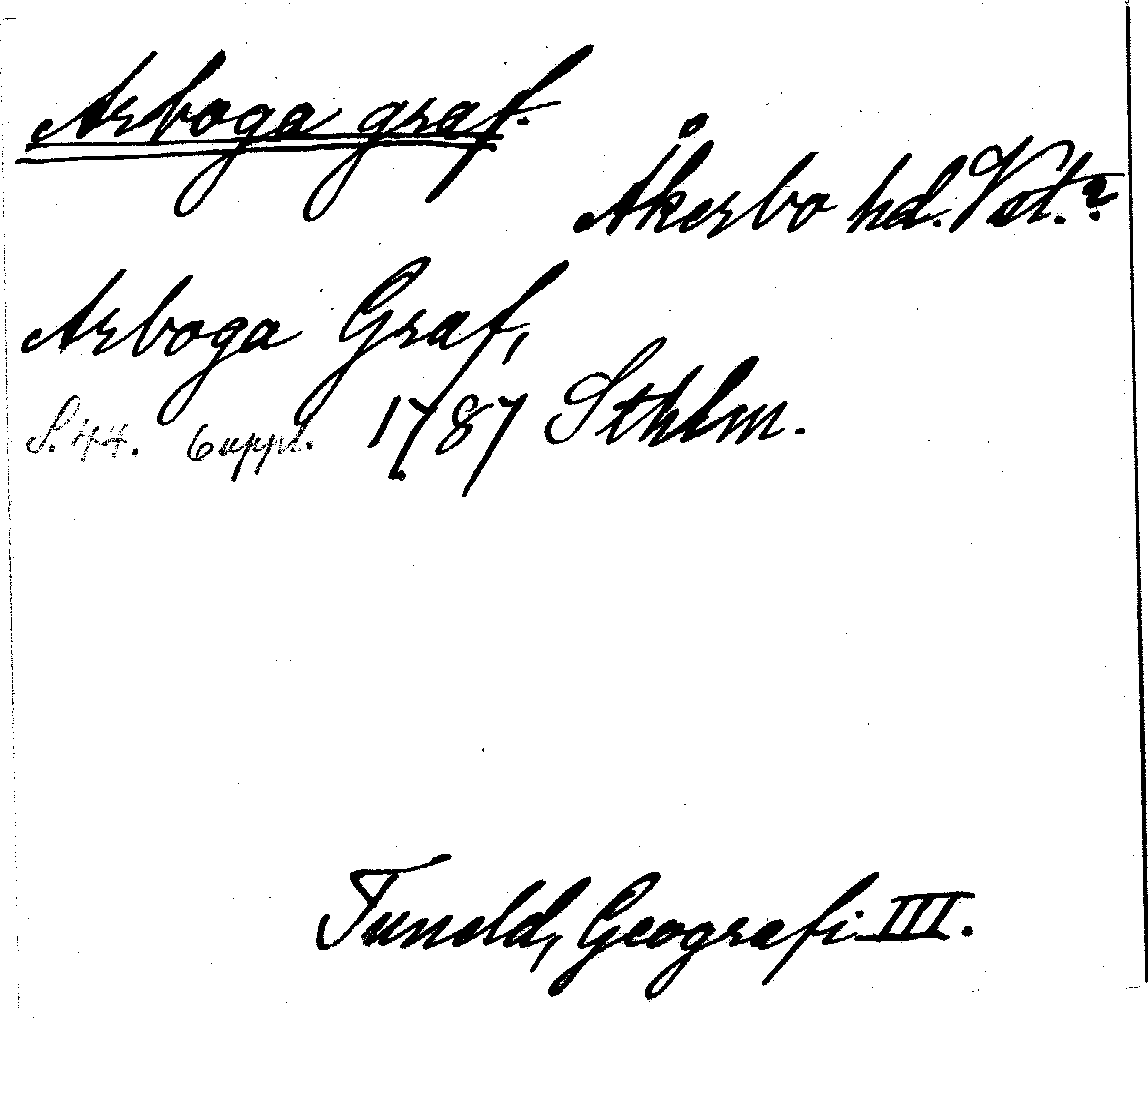 Arboga graf.
Åkerbo hd. Vstm.
Arboga Graf,
S. 44. 6 uppl. 1787 Sthlm.
Tuneld, Geografi III.